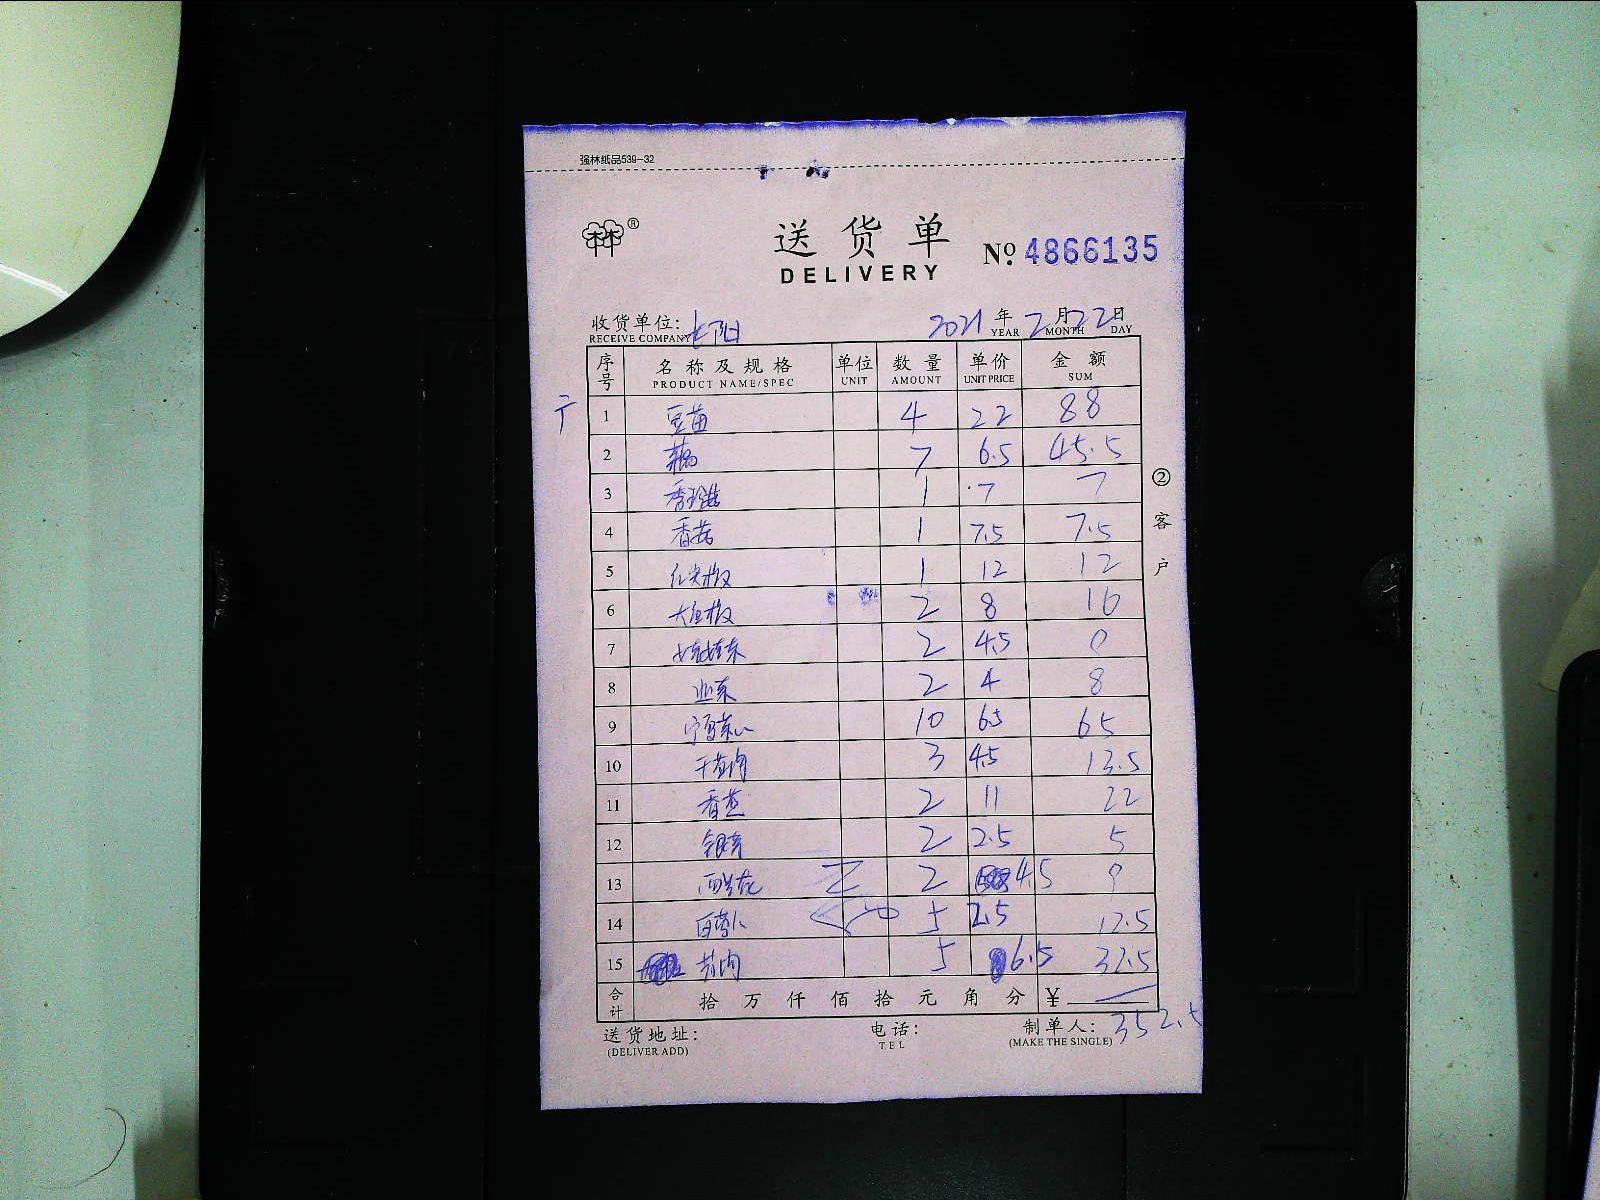 强林纸品539-32
林®
送货单
DELIVERY
№ 4866135
收货单位: 长阳 2021年2月22日
RECEIVE COMPANY YEAR MONTH DAY
序号 名称及规格 单位 数量 单价 金额
PRODUCT NAME/SPEC UNIT AMOUNT UNIT PRICE SUM
1 豆苗 4 22 88
2 藕 7 6.5 45.5
3 7 1 7
4 香菇 1 7.5 7.5
5 红尖椒 1 12 12
6 大红椒 2 8 16
7 娃娃菜 2 4.5 9
8 2 4 8
9 宁夏菜心 10 6.5 65
10 3 4.5 13.5
11 香芝 2 11 22
12 银芽 2 2.5 5
13 西兰花 2 4.5 9
14 白萝卜 5 2.5 12.5
15 5 6.5 32.5
合计 拾万仟佰拾元角分 ¥
352.5
送货地址: 电话: 制单人:
(DELIVER ADD) TEL (MAKE THE SINGLE)
②客户